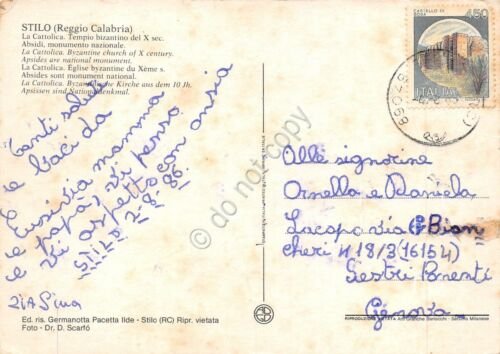 STILO (Reggio Calabria)
La Cattolica. Tempio bizantino del X sec.
Absidi, monumento nazionale.
La Cattolica. Byzantine church of X century.
Apsides are national monument.
La Cattolica. Église byzantine du Xème s.
Absides sont monument national.
La Cattolica. Byzantinische Kirche aus dem 10 Jh.
Apsissen sind Nationaldenkmal.
CASTELLO DI
450
ITALIA
89068
Tanti saluti
e baci da
mamma
e papà, vi penso
e vi aspetto con ansia
STILO 2-8-86.
zia Pina
Alle signorine
Ornella e Daniela
Lacopo via Bian
cheri N 18/3 (16154)
Sestri Ponenti
Genova
© do not copy
Ed. ris. Germanotta Pacetta Ilde - Stilo (RC) Ripr. vietata
Foto - Dr. D. Scarfó
RIPRODUZIONE VIETATA